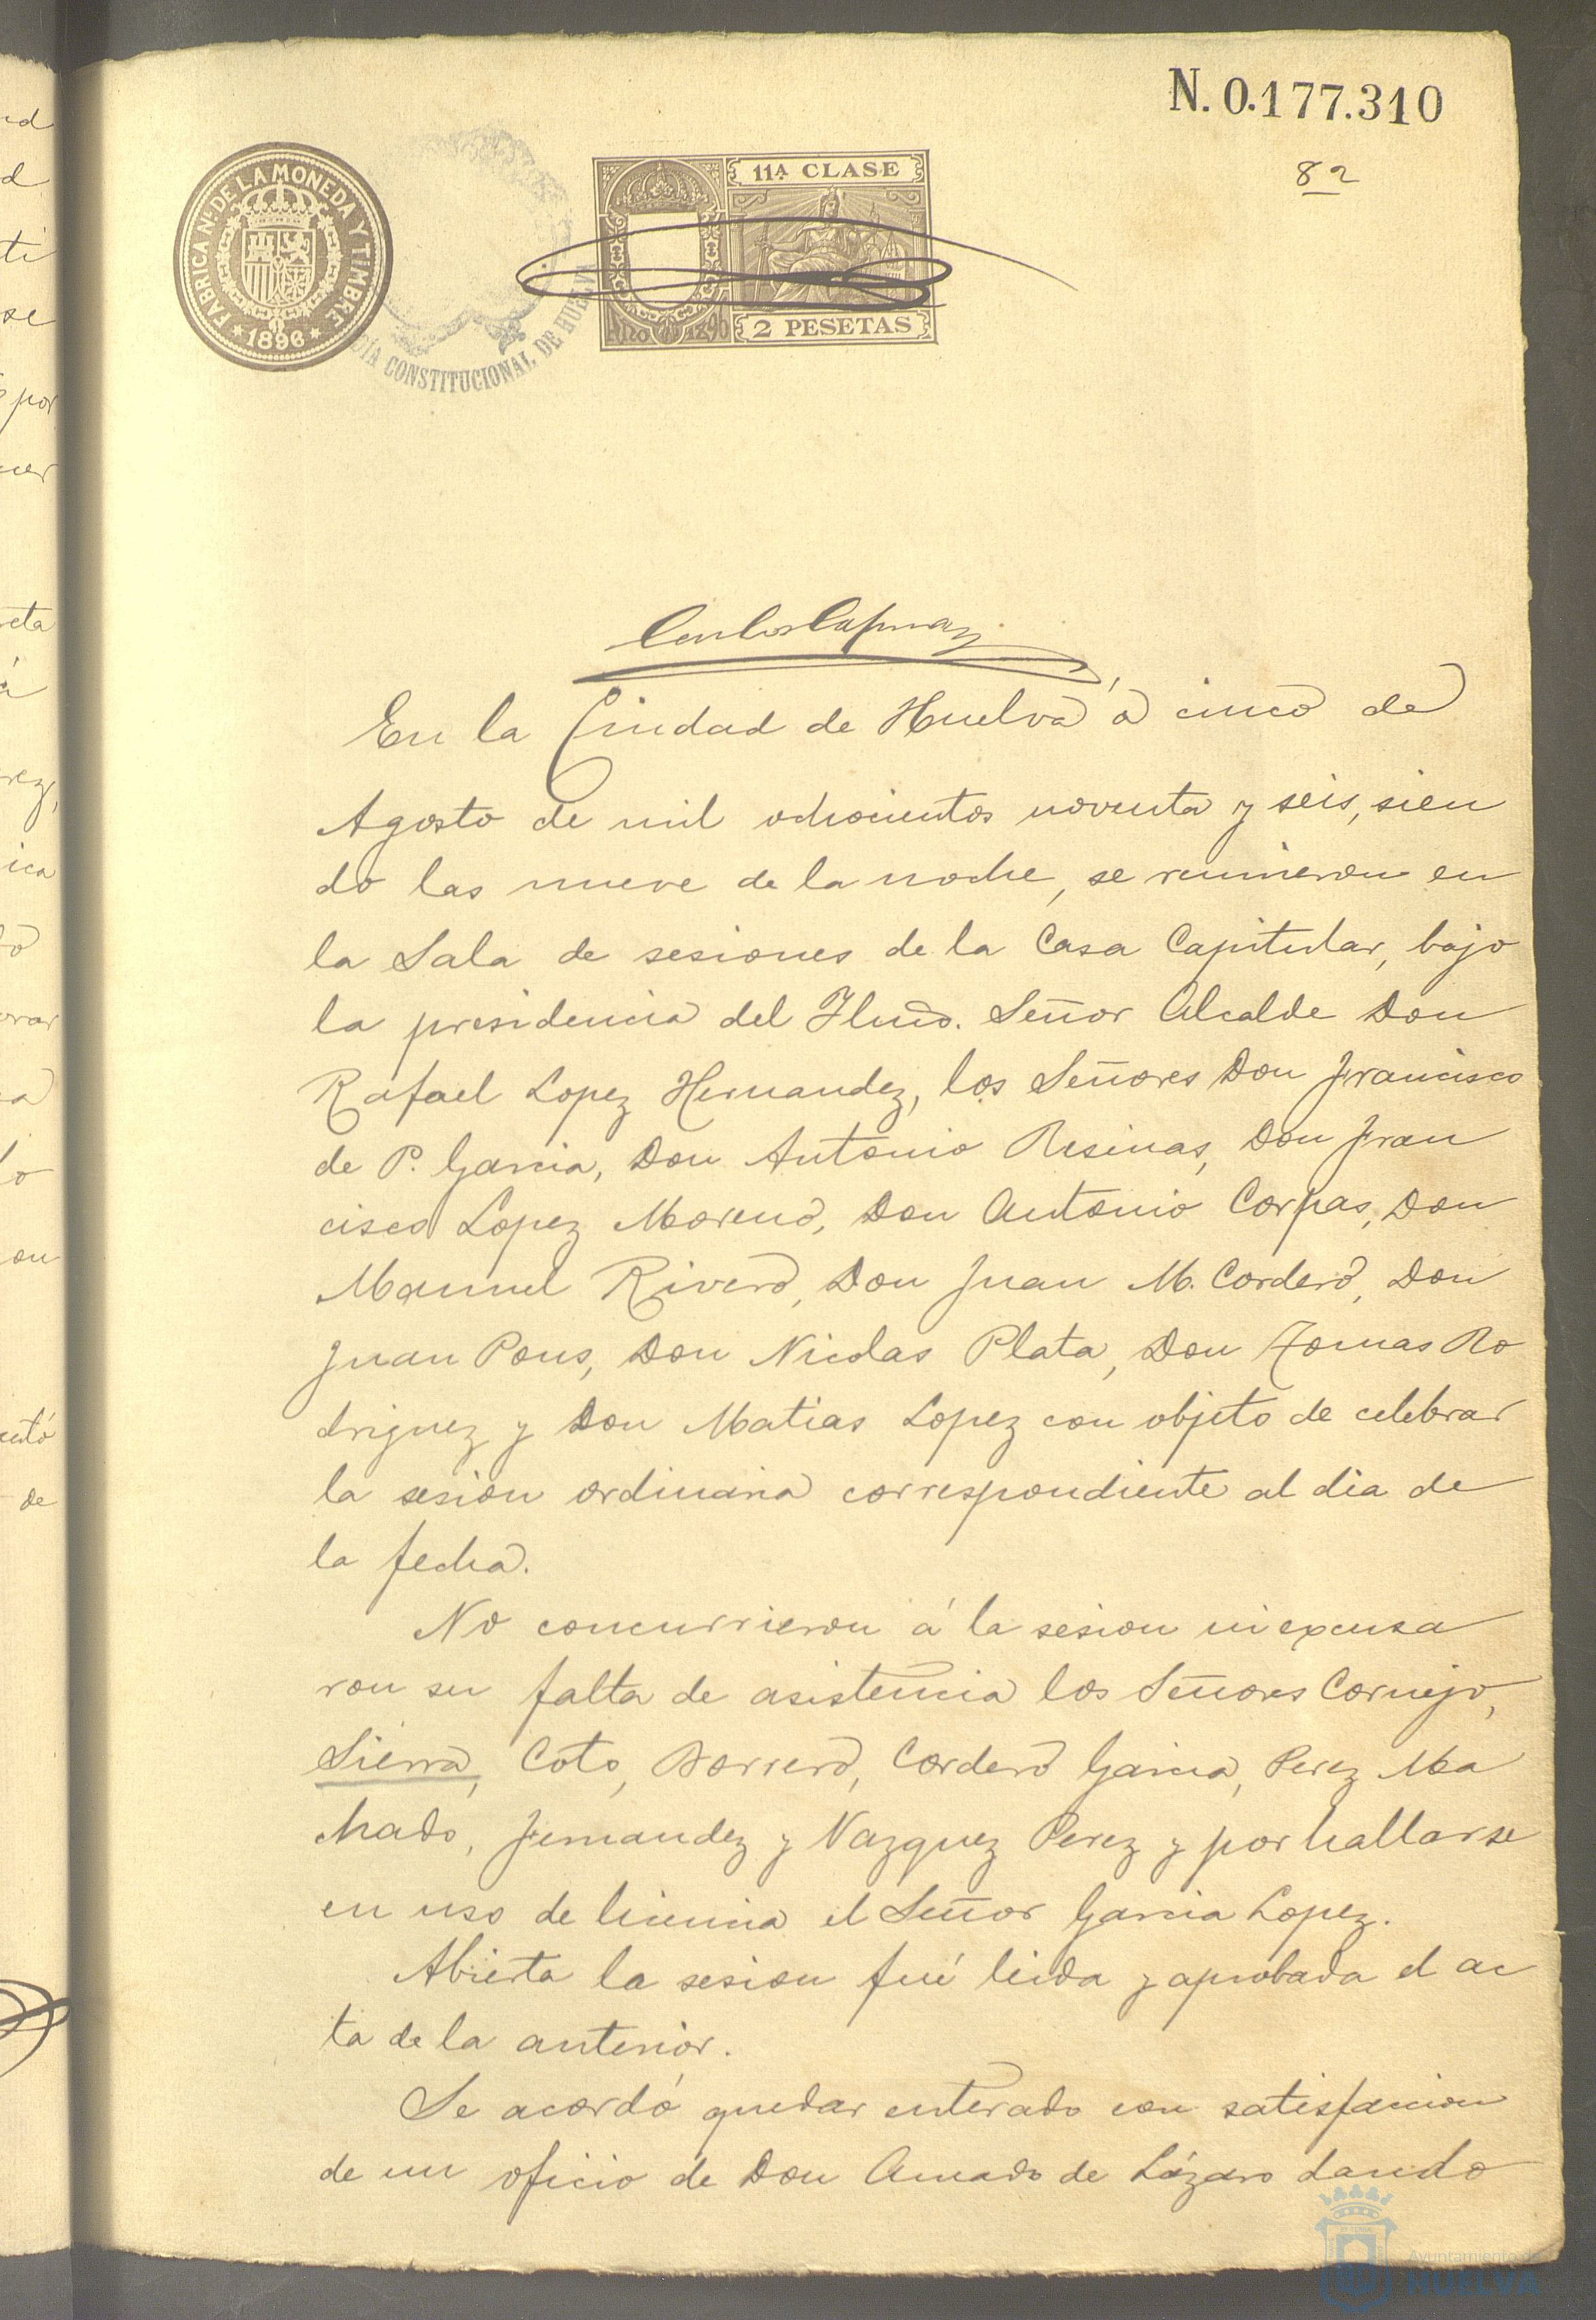 N. 0.177.310
82
FABRICA Nᴸ DE LA MONEDA Y TIMBRE
* 1896 *
DÍA CONSTITUCIONAL DE HUELVA
11ª CLASE
2 PESETAS
En la Ciudad de Huelva á cinco de
Agosto de mil ochocientos noventa y seis, sien
do las nueve de la noche, se reunieron en
la Sala de sesiones de la Casa Capitular, bajo
la presidencia del Ilmo. Señor Alcalde Don
Rafael Lopez Hernandez, los Señores Don Francisco
de P. Garcia, Don Antonio Resinas, Don Fran
cisco Lopez Moreno, Don Antonio Corpas, Don
Manuel Rivero, Don Juan M. Cordero, Don
Juan Pons, Don Nicolas Plata, Don Tomas Ro
driguez y Don Matias Lopez con objeto de celebrar
la sesion ordinaria correspondiente al dia de
la fecha.
No concurrieron á la sesion ni excusa
ron su falta de asistencia los Señores Cornejo,
Sierra, Coto, Borrero, Cordero Garcia, Perez Ma
chado, Fernandez y Vazquez Perez y por hallarse
en uso de licencia el Señor Garcia Lopez.
Abierta la sesion fué leida y aprobada el ac
ta de la anterior.
Se acordó quedar enterado con satisfaccion
de un oficio de Don Amado de Lázaro dando
Ayuntamiento de
HUELVA